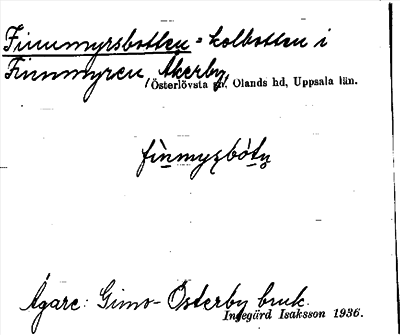 Finnmyrsbotten = kolbotten i
Finnmyren, Åkerby,
Österlövsta sn, Olands hd, Uppsala län.
fìnmyṣbót​n̥
Ägare: Gimo-Österby bruk.
Ingegärd Isaksson 1936.